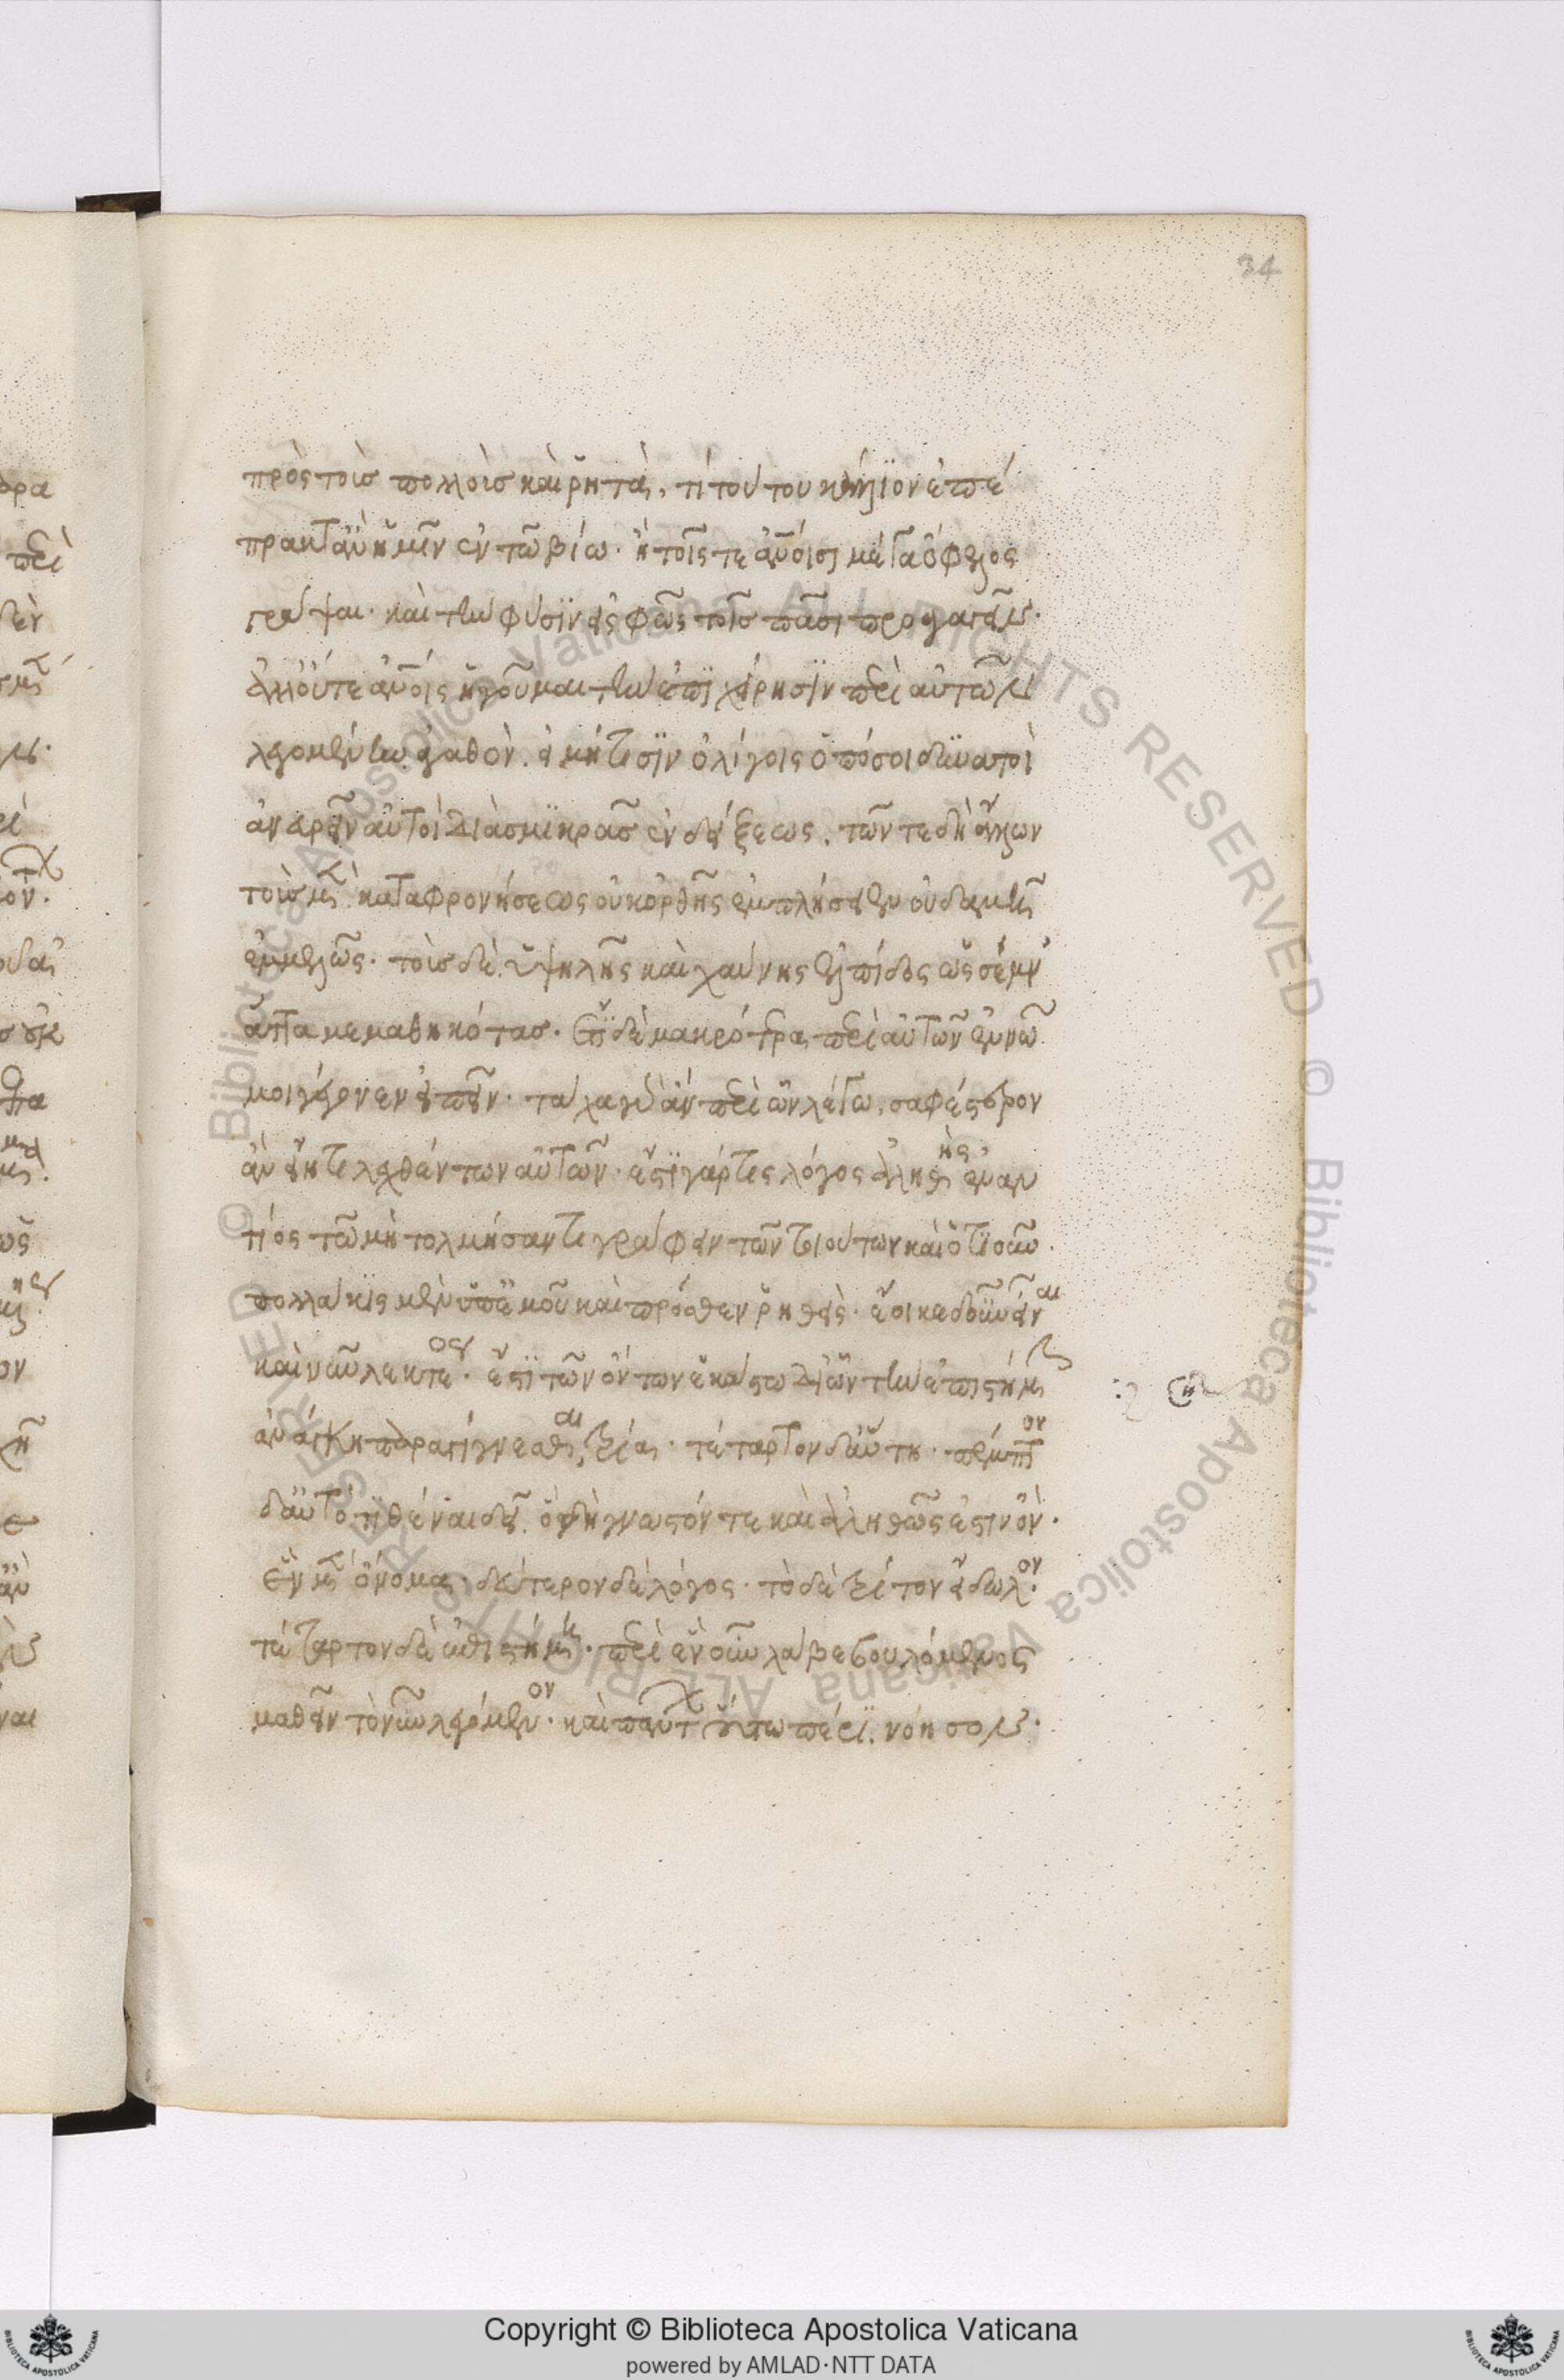 34
πρὸς τοὺς πολλοὺς καὶ ῥητὰ, τί τούτου κάλλιον ἐπέ
πρακτ' ἂν ἡμῖν ἐν τῶ βίω. ἢ τοῖς τε ἀνοῖσι μέγα ὄφελος
γράψαι. καὶ τὴν φύσιν εἰς φῶς τοῖς πᾶσι προαγαγεῖν.
ἀλλ' οὔτε ἀνοῖς ἡγοῦμαι τὴν ἐπιχείρησιν περὶ αὐτῶν
λεγομένην ἀγαθὸν. εἰ μή τισιν ὀλίγοις ὁπόσοι δυνατοὶ
ἀνευρεῖν αὐτοὶ διὰ σμικρᾶς ἐνδείξεως. τῶν τε δὴ ἄλλων
τοὺς μὲν καταφρονήσεως οὐκ ὀρθῆς ἐμπλήσειεν οὐδαμῆ
ἐμμελῶς. τοὺς δὲ ὑψηλῆς καὶ χαύνης ἐλπίδος ὡς σέμν'
ἄττα μεμαθηκότας. ἔτι δὲ μακρότερα περὶ αὐτῶν ἐν νῶ
μοι γέγονεν εἰπεῖν. τάχα γὰρ ἂν περὶ ὧν λέγω, σαφέστερον
ἂν εἴη τι λεχθέντων αὐτῶν. ἔστι γάρ τις λόγος ἀληθὴς ἐναν
τίος τῶ μὴ τολμήσαντι γράφειν τῶν τοιούτων καὶ ὁτιοῦν.
πολλάκις μὲν ὑπ' ἐμοῦ καὶ πρόσθεν ῥηθεὶς. ἔοικε δ' οὖν εἶναι
καὶ νῦν λεκτέος. ἔστι τῶν ὄντων ἑκάστω δι' ὧν τὴν ἐπιστήμην
ἀνάγκη παραγίγνεσθαι, τρία. τέταρτον δ' αὐτὴ. πέμπτον
δ' αὐτὸ τιθέναι δεῖ. ὃ δὴ γνωστόν τε καὶ ἀληθῶς ἐστιν ὂν.
ἓν μὲν ὄνομα. δεύτερον δὲ λόγος. τὸ δὲ τρίτον εἴδωλον.
τέταρτον δὲ ἐπιστήμη. περὶ ἓν οὖν λάβε βουλόμενος
μαθεῖν τὸ νῦν λεγόμενον. καὶ πάντων οὕτω πέρι νόησον.